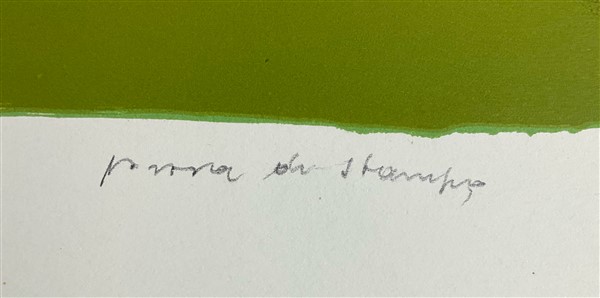 prova di stampa